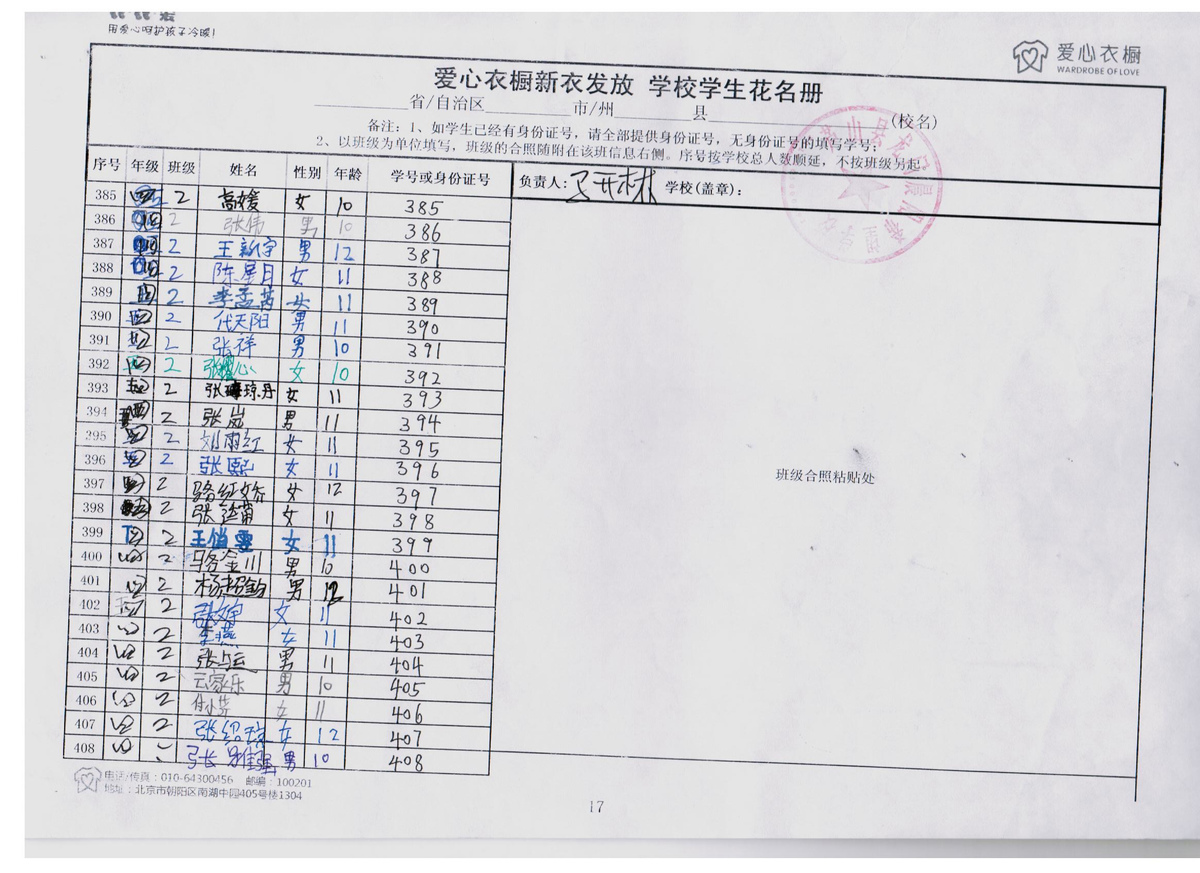 用爱心呵护孩子冷暖!
爱心衣橱
WARDROBE OF LOVE
爱心衣橱新衣发放 学校学生花名册
省/自治区 市/州 县 (校名)
备注:1、如学生已经有身份证号,请全部提供身份证号,无身份证号的填写学号;
2、以班级为单位填写,班级的合照随附在该班信息右侧。序号按学校总人数顺延,不按班级另起
序号 年级 班级 姓名 性别 年龄 学号或身份证号
负责人: 开林 学校(盖章):
385 2 高媛 女 10 385
386 四 2 张伟 男 10 386
387 四 2 王新宇 男 12 387
388 四 2 陈星月 女 11 388
389 四 2 李孟芮 女 11 389
390 四 2 代天阳 男 11 390
391 四 2 张祥 男 10 391
392 四 2 张 心 女 10 392
393 四 2 张 琼丹 女 11 393
394 四 2 张岚 男 11 394
395 四 2 刘雨红 女 11 395
396 四 2 张熙 女 11 396
397 四 2 骆红娇 女 12 397
398 2 张 莆 女 11 398
399 四 2 王俏雯 女 11 399
400 四 2 骆金川 男 10 400
401 四 2 杨 男 12 401
402 四 2 张文宇 女 11 402
403 四 2 李燕 女 11 403
404 四 2 张占云 男 11 404
405 四 2 云家乐 男 10 405
406 四 2 付小芳 女 11 406
407 四 2 张绍琼 女 12 407
408 四 张雅强 男 10 408
班级合照粘贴处
电话/传真:010-64300456 邮编:100201
地址:北京市朝阳区南湖中园405号楼1304
17